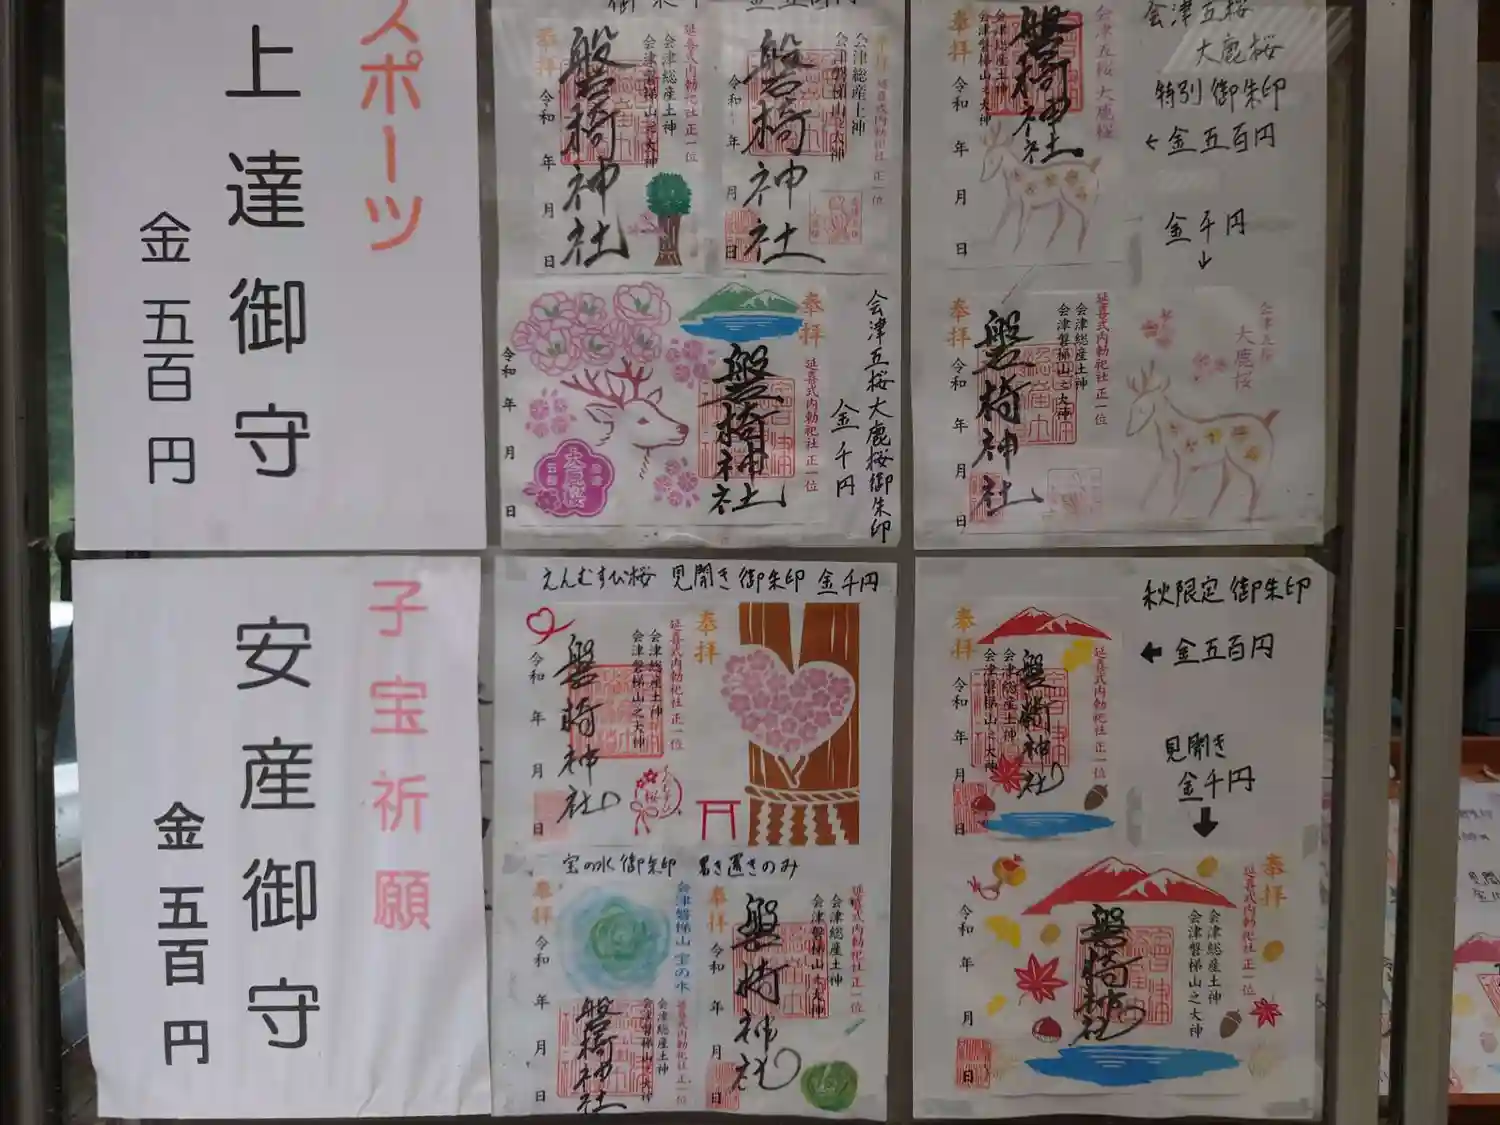 スポーツ
上達御守
金五百円
子宝祈願
安産御守
金五百円
奉拝
延喜式内勅祀社 正一位
会津総産土神
会津磐梯山之大神
磐椅神社
令和 年 月 日
延喜式内勅祀社 正一位
会津総産土神
会津磐梯山之大神
磐椅神社
令和 年 月 日
会津五桜大鹿桜御朱印
金千円
奉拝
延喜式内勅祀社 正一位
磐椅神社
令和 年 月 日
会津五桜
大鹿桜
特別御朱印
←金五百円
金千円
↓
会津五桜 大鹿桜
奉拝
会津総産土神
会津磐梯山之大神
磐椅神社
令和 年 月 日
会津五桜
大鹿桜
延喜式内勅祀社 正一位
会津総産土神
会津磐梯山之大神
奉拝
磐椅神社
令和 年 月 日
えんむすび桜 見開き御朱印 金千円
奉拝
延喜式内勅祀社 正一位
会津総産土神
会津磐梯山之大神
磐椅神社
令和 年 月 日
宝の水 御朱印 書き置きのみ
奉拝
会津磐梯山 宝の水
延喜式内勅祀社 正一位
会津総産土神
会津磐梯山之大神
磐椅神社
令和 年 月 日
奉拝
延喜式内勅祀社 正一位
会津総産土神
会津磐梯山之大神
磐椅神社
令和 年 月 日
秋限定御朱印
←金五百円
見開き
金千円
↓
奉拝
延喜式内勅祀社 正一位
会津総産土神
会津磐梯山之大神
磐椅神社
令和 年 月 日
奉拝
延喜式内勅祀社 正一位
会津総産土神
会津磐梯山之大神
磐椅神社
令和 年 月 日